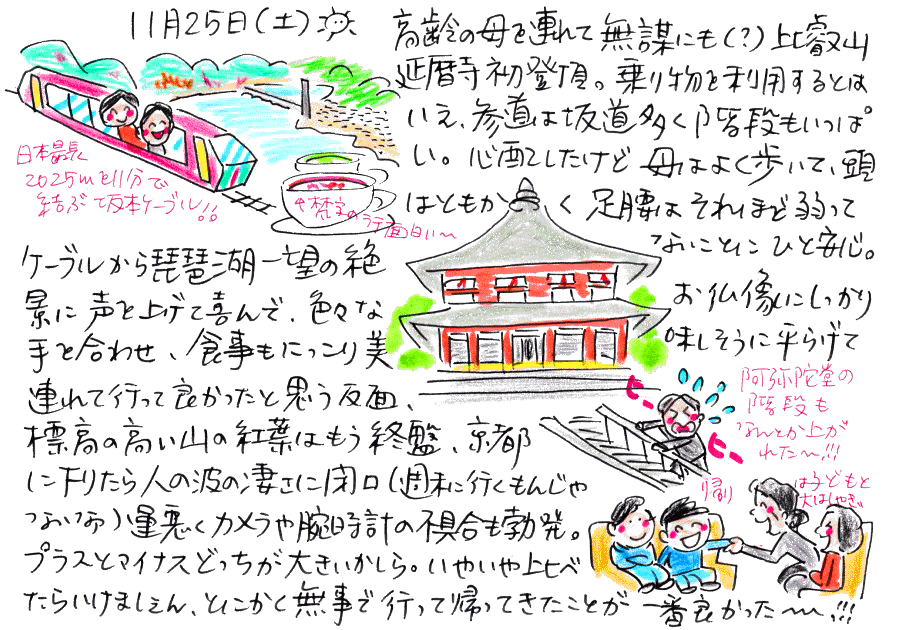 11月25日(土)
高齢の母を連れて無謀にも(?)比叡山
延暦寺初登頂。乗り物を利用するとは
いえ、参道は坂道多く階段もいっぱ
い。心配したけど母はよく歩いて、頭
はともかく足腰はそれほど弱って
ないことにひと安心。
日本最長
2025mを11分で
結ぶ坂本ケーブル!!
梵字のラテ面白い〜
ケーブルから琵琶湖一望の絶
景に声を上げて喜んで、色々な
お仏像にしっかり
手を合わせ、食事もにっこり美
味しそうに平らげて
連れて行って良かったと思う反面、
標高の高い山の紅葉はもう終盤、京都
に下りたら人の波の凄さに閉口(週末に行くもんじゃ
ないなあ)運悪くカメラや腕時計の不具合も勃発。
プラスとマイナスどっちが大きいかしら。いやいや比べ
たらいけません、とにかく無事で行って帰ってきたことが一番良かった〜!!!
阿弥陀堂の
階段も
なんとか上が
れた〜!!!
ヒー
ヒー
帰り
は子どもと
大はしゃぎ